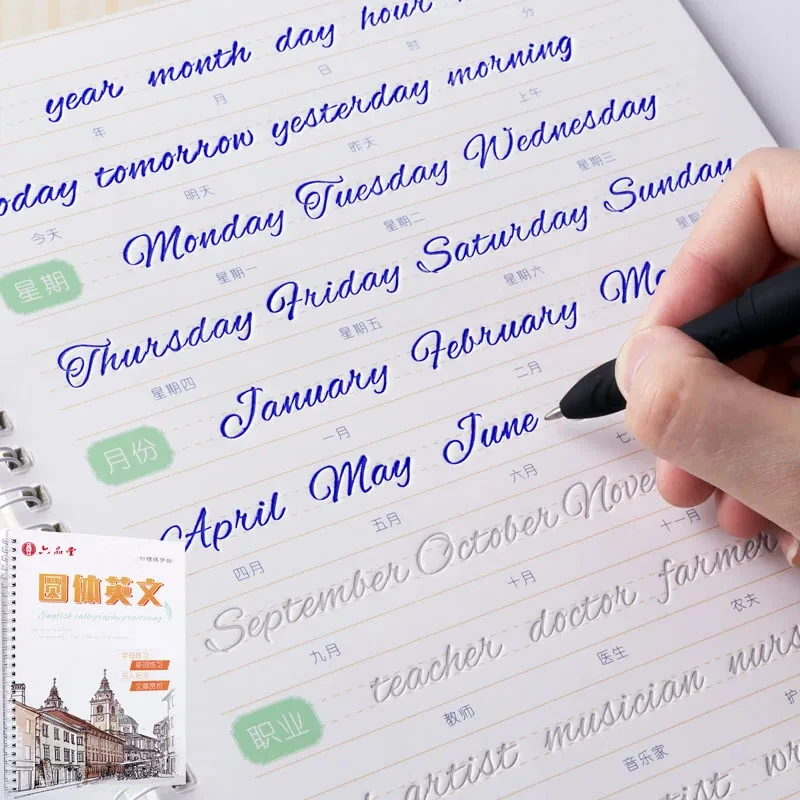 year month day hour
年 月 日 时 分
tomorrow yesterday morning
今天 明天 昨天 上午
Monday Tuesday Wednesday
星期
星期一 星期二 星期三
Thursday Friday Saturday Sunday
星期四 星期五 星期六
January February
月份
一月 二月
April May June
四月 五月 六月
September October
九月 十月 十一月
teacher doctor farmer
职业
教师 医生 农夫
artist musician
音乐家
六品堂
圆体英文
English calligraphy practicing
字母练习
单词练习
名人名言
文章赏析